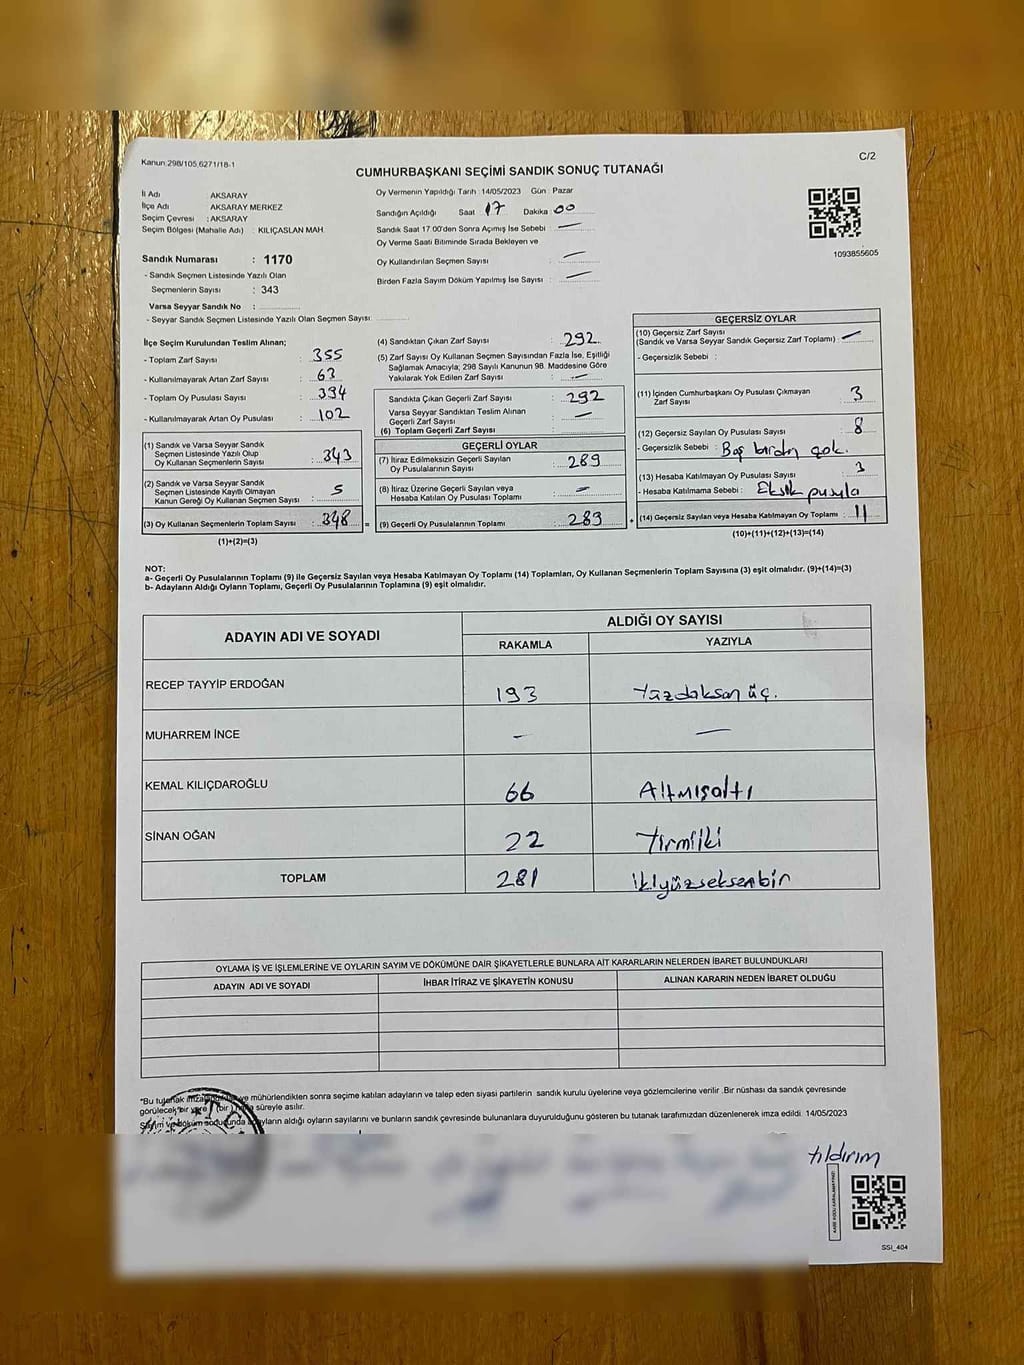 Kanun:298/105,6271/18-1
C/2
CUMHURBAŞKANI SEÇİMİ SANDIK SONUÇ TUTANAĞI
İl Adı AKSARAY
İlçe Adı AKSARAY MERKEZ
Seçim Çevresi : AKSARAY
Seçim Bölgesi (Mahalle Adı) : KILIÇASLAN MAH.
Sandık Numarası : 1170
- Sandık Seçmen Listesinde Yazılı Olan
Seçmenlerin Sayısı : 343
Varsa Seyyar Sandık No :
- Seyyar Sandık Seçmen Listesinde Yazılı Olan Seçmen Sayısı:
Oy Vermenin Yapıldığı Tarih :14/05/2023 Gün : Pazar
Sandığın Açıldığı Saat 17 Dakika 00
Sandık Saat 17:00'den Sonra Açımış İse Sebebi : —
Oy Verme Saati Bitiminde Sırada Bekleyen ve
Oy Kullandırılan Seçmen Sayısı : —
Birden Fazla Sayım Döküm Yapılmış İse Sayısı : —
1093855605
İlçe Seçim Kurulundan Teslim Alınan;
- Toplam Zarf Sayısı : 355
- Kullanılmayarak Artan Zarf Sayısı : 63
- Toplam Oy Pusulası Sayısı : 394
- Kullanılmayarak Artan Oy Pusulası : 102
(1) Sandık ve Varsa Seyyar Sandık
Seçmen Listesinde Yazılı Olup
Oy Kullanan Seçmenlerin Sayısı : 343
(2) Sandık ve Varsa Seyyar Sandık
Seçmen Listesinde Kayıtlı Olmayan
Kanun Gereği Oy Kullanan Seçmen Sayısı : 5
(3) Oy Kullanan Seçmenlerin Toplam Sayısı : 348 =
(1)+(2)=(3)
(4) Sandıktan Çıkan Zarf Sayısı : 292
(5) Zarf Sayısı Oy Kullanan Seçmen Sayısından Fazla İse, Eşitliği
Sağlamak Amacıyla; 298 Sayılı Kanunun 98. Maddesine Göre
Yakılarak Yok Edilen Zarf Sayısı : —
Sandıkta Çıkan Geçerli Zarf Sayısı : 292
Varsa Seyyar Sandıktan Teslim Alınan
Geçerli Zarf Sayısı : —
(6) Toplam Geçerli Zarf Sayısı :
GEÇERLİ OYLAR
(7) İtiraz Edilmeksizin Geçerli Sayılan
Oy Pusulalarının Sayısı : 289
(8) İtiraz Üzerine Geçerli Sayılan veya
Hesaba Katılan Oy Pusulaları Toplamı : —
(9) Geçerli Oy Pusulalarının Toplamı : 289 +
GEÇERSİZ OYLAR
(10) Geçersiz Zarf Sayısı
(Sandık ve Varsa Seyyar Sandık Geçersiz Zarf Toplamı) : —
- Geçersizlik Sebebi :
(11) İçinden Cumhurbaşkanı Oy Pusulası Çıkmayan
Zarf Sayısı : 3
(12) Geçersiz Sayılan Oy Pusulası Sayısı : 8
- Geçersizlik Sebebi : Boş birden çok.
(13) Hesaba Katılmayan Oy Pusulası Sayısı : 3
- Hesaba Katılmama Sebebi : Eksik pusula
(14) Geçersiz Sayılan veya Hesaba Katılmayan Oy Toplamı : 11
(10)+(11)+(12)+(13)=(14)
NOT:
a- Geçerli Oy Pusulalarının Toplamı (9) ile Geçersiz Sayılan veya Hesaba Katılmayan Oy Toplamı (14) Toplamları, Oy Kullanan Seçmenlerin Toplam Sayısına (3) eşit olmalıdır. (9)+(14)=(3)
b- Adayların Aldığı Oyların Toplamı, Geçerli Oy Pusulalarının Toplamına (9) eşit olmalıdır.
ADAYIN ADI VE SOYADI ALDIĞI OY SAYISI
RAKAMLA YAZIYLA
RECEP TAYYİP ERDOĞAN 193 Yüzdoksan üç.
MUHARREM İNCE - —
KEMAL KILIÇDAROĞLU 66 Altmışaltı
SİNAN OĞAN 22 Yirmiiki
TOPLAM 281 ikiyüzseksenbir
OYLAMA İŞ VE İŞLEMLERİNE VE OYLARIN SAYIM VE DÖKÜMÜNE DAİR ŞİKAYETLERLE BUNLARA AİT KARARLARIN NELERDEN İBARET BULUNDUKLARI
ADAYIN ADI VE SOYADI İHBAR İTİRAZ VE ŞİKAYETİN KONUSU ALINAN KARARIN NEDEN İBARET OLDUĞU
"Bu tutanak ve mühürlendikten sonra seçime katılan adayların ve talep eden siyasi partilerin sandık kurulu üyelerine veya gözlemcilerine verilir .Bir nüshası da sandık çevresinde
görülecek bir yere (bir) süreyle asılır.
Sayım ve döküm sonunda adayların aldığı oyların sayılarını ve bunların sandık çevresinde bulunanlara duyurulduğunu gösteren bu tutanak tarafımızdan düzenlenerek imza edildi. 14/05/2023
T.C
Yıldırım
KARE KODU KARALAMAYINIZ!
SSI_404